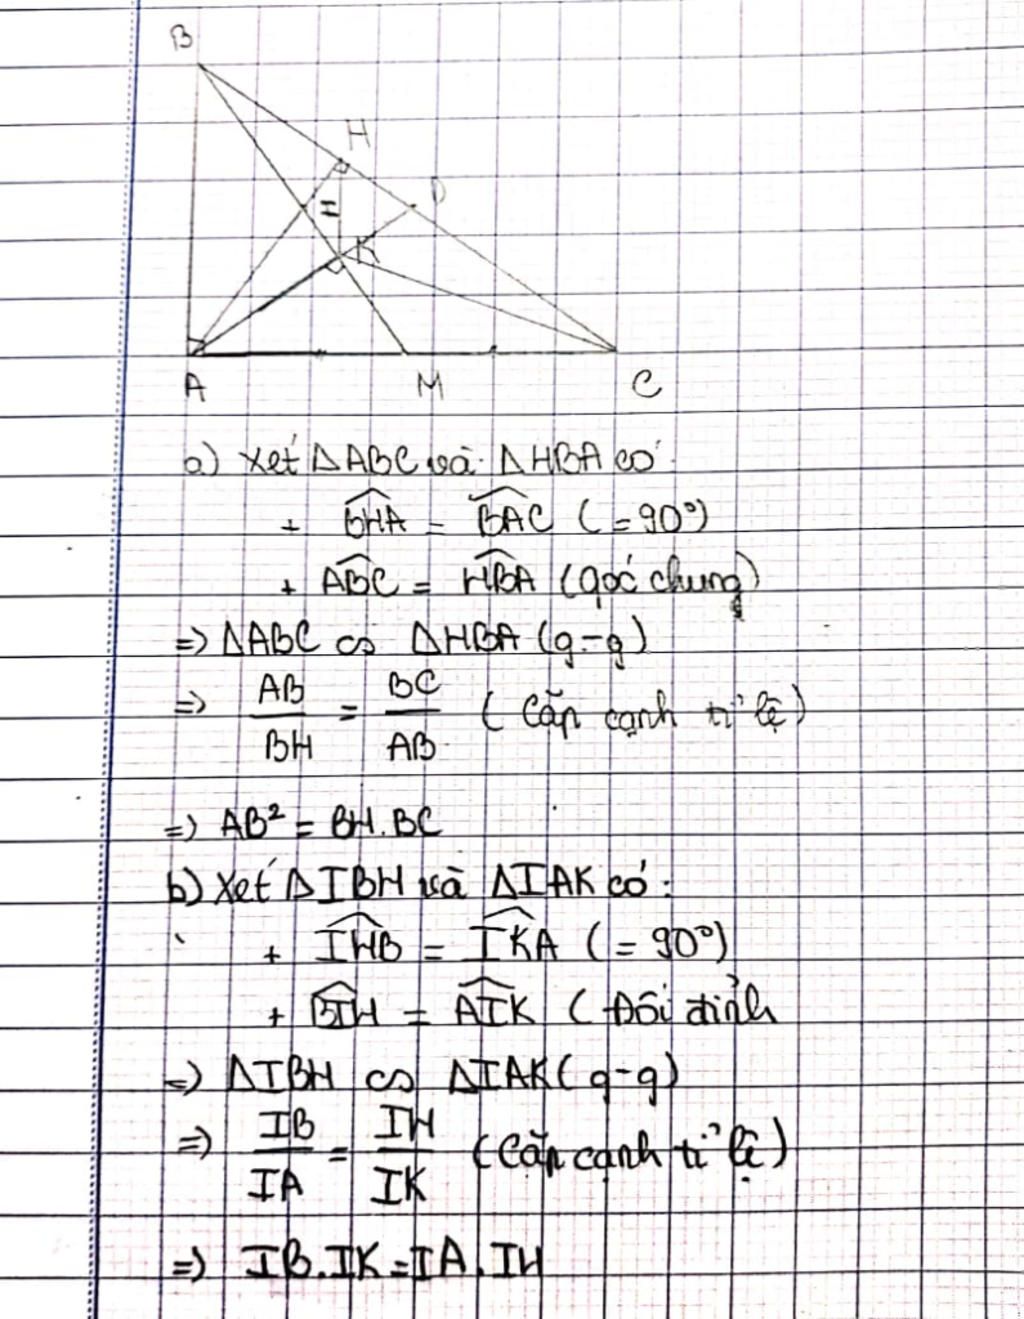 B
H
D
I
K
A M C
a) Xét ΔABC và ΔHBA có:
+ \widehat{BHA} = \widehat{BAC} (=90°)
+ \widehat{ABC} = \widehat{HBA} (góc chung)
=> ΔABC ∽ ΔHBA (g-g)
=> \frac{AB}{BH} = \frac{BC}{AB} (Cặp cạnh tỉ lệ)
=> AB² = BH.BC
b) Xét ΔIBH và ΔIAK có:
+ \widehat{IHB} = \widehat{IKA} (= 90°)
+ \widehat{BIH} = \widehat{AIK} (Đối đỉnh
=> ΔIBH ∽ ΔIAK (g-g)
=> \frac{IB}{IA} = \frac{IH}{IK} (Cặp cạnh tỉ lệ)
=> IB.IK=IA.IH